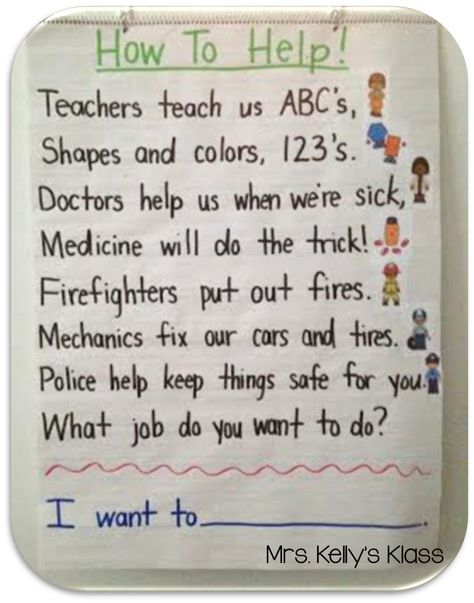 How To Help!
Teachers teach us ABC's,
Shapes and colors, 123's.
Doctors help us when we're sick,
Medicine will do the trick!
Firefighters put out fires.
Mechanics fix our cars and tires.
Police help keep things safe for you.
What job do you want to do?
I want to____________.
Mrs. Kelly's Klass